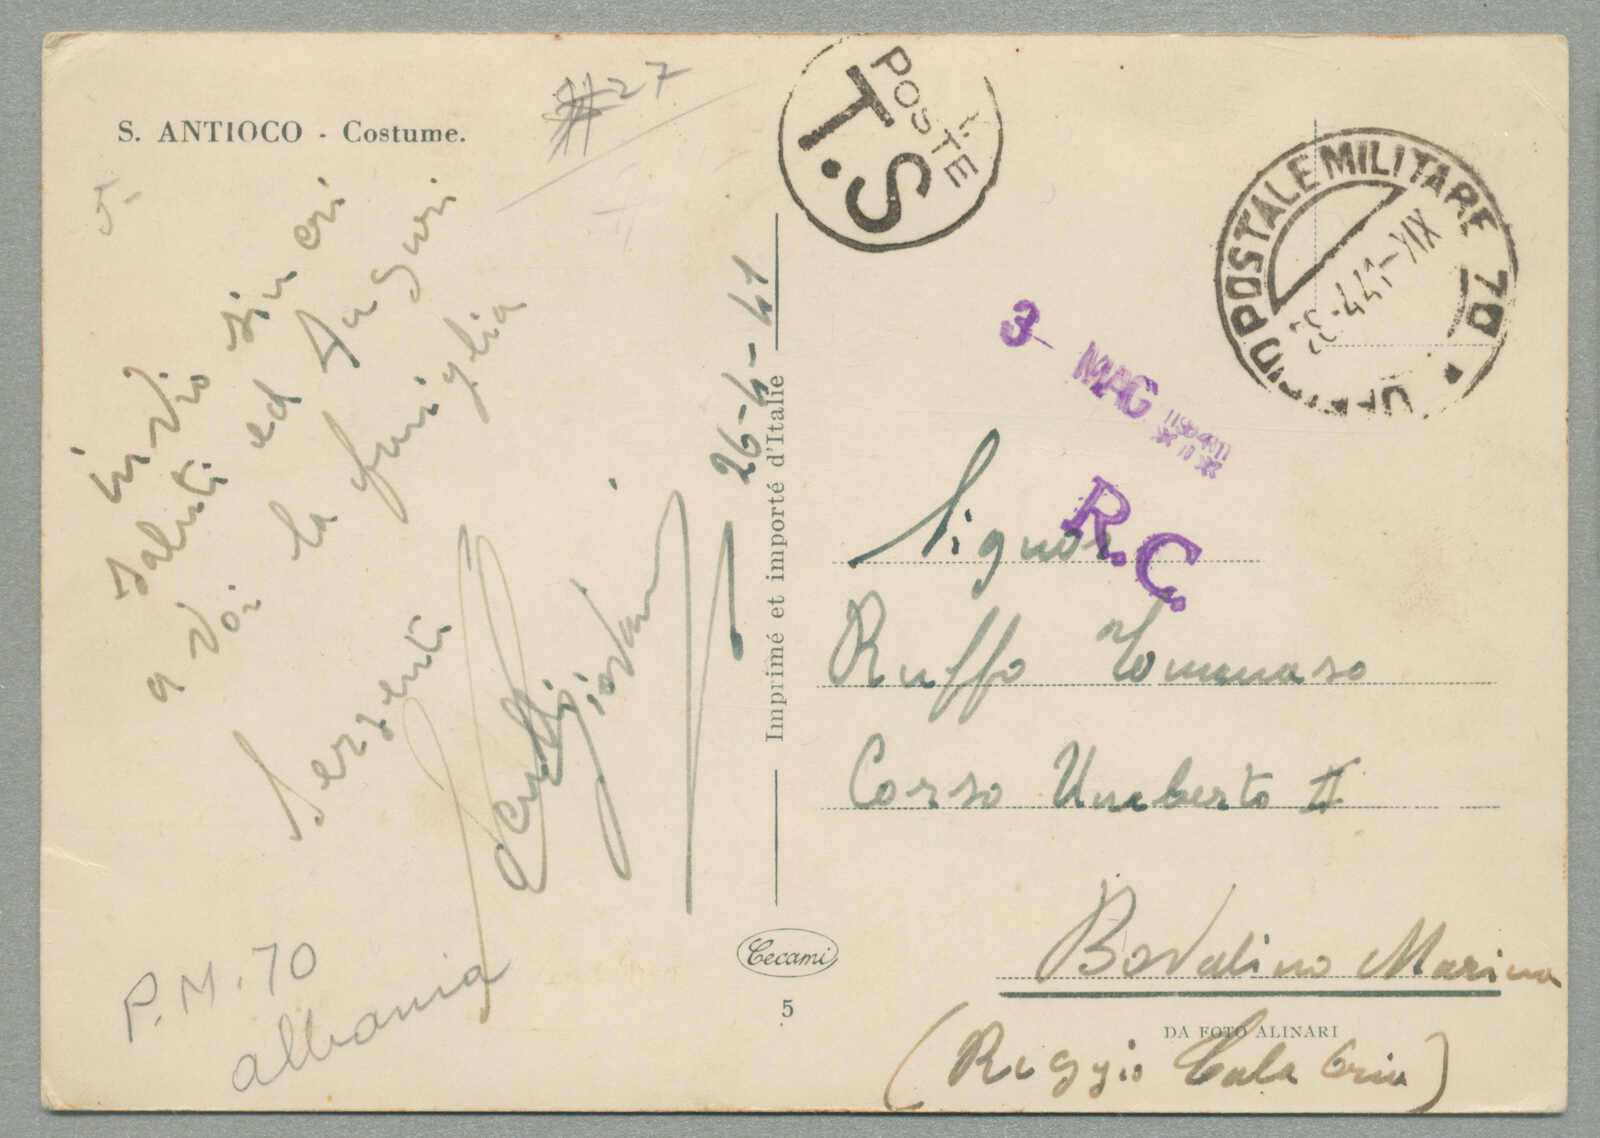 S. ANTIOCO - Costume.
#27
invio sinceri
saluti ed auguri
a voi la famiglia
Sergente
Giovanni
26-4-41
P.M.70
albania
Imprimé et importé d'Italie
Cecami
5
POSTE
T.S
UFFICIO POSTALE MILITARE 70
XIX
3 - MAG
R.C.
Signor
Ruffo Tommaso
Corso Umberto II
Bovalino Marina
DA FOTO ALINARI
(Reggio Calabria)